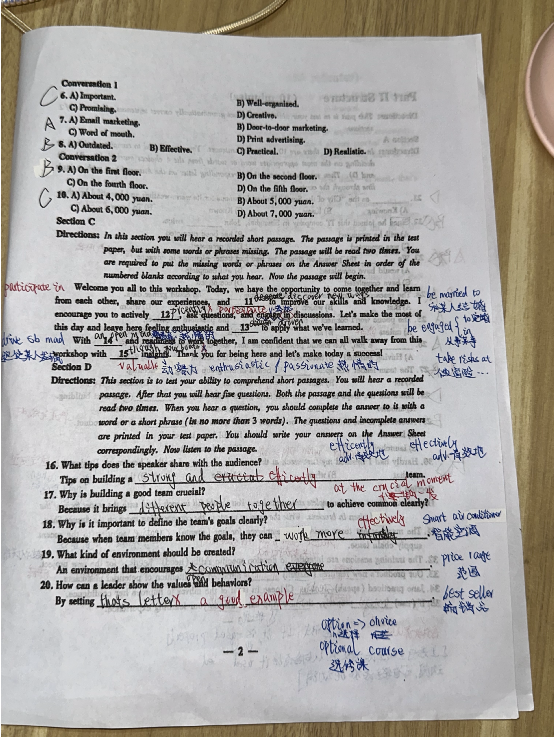 Conversation 1
C 6. A) Important. B) Well-organised.
C) Promising. D) Creative.
A 7. A) Email marketing. B) Door-to-door marketing.
C) Word of mouth. D) Print advertising.
B 8. A) Outdated. B) Effective. C) Practical. D) Realistic.
Conversation 2
B 9. A) On the first floor. B) On the second floor.
C) On the fourth floor. D) On the fifth floor.
C 10. A) About 4,000 yuan. B) About 5,000 yuan.
C) About 6,000 yuan. D) About 7,000 yuan.
Section C
Directions: In this section you will hear a recorded short passage. The passage is printed in the test
paper, but with some words or phrases missing. The passage will be read two times. You
are required to put the missing words or phrases on the Answer Sheet in order of the
numbered blanks according to what you hear. Now the passage will begin.
participate in
Welcome you all to this workshop. Today, we have the opportunity to come together and learn
discover new ways
from each other, share our experiences, and 11 to improve our skills and knowledge. I
be married to
participate
encourage you to actively 12, ask questions, and engage in discussions. Let's make the most of
this day and leave here feeling enthusiastic and 13 to apply what we've learned.
be engaged in
an open mind
With 14 and readiness to work together, I am confident that we can all walk away from this
drive sb mad
workshop with 15 insights. Thank you for being here and let's make today a success!
take risks at
valuable
enthusiastic / passionate 热情的
Section D
Directions: This section is to test your ability to comprehend short passages. You will hear a recorded
passage. After that you will hear five questions. Both the passage and the questions will be
read two times. When you hear a question, you should complete the answer to it with a
word or a short phrase (in no more than 3 words). The questions and incomplete answers
are printed in your test paper. You should write your answers on the Answer Sheet
correspondingly. Now listen to the passage.
efficently effectively
16. What tips does the speaker share with the audience?
Tips on building a strong and efficently team.
at the crucial moment
17. Why is building a good team crucial?
Because it brings different people together to achieve common clearly?
18. Why is it important to define the team's goals clearly?
effectively
smart air conditioner
智能空调
Because when team members know the goals, they can work more .
19. What kind of environment should be created?
price range
范围
An environment that encourages communication .
20. How can a leader show the values and behaviors?
best seller
畅销品
By setting thats letter a good example .
option => choice
选择
optional course
选修课
— 2 —